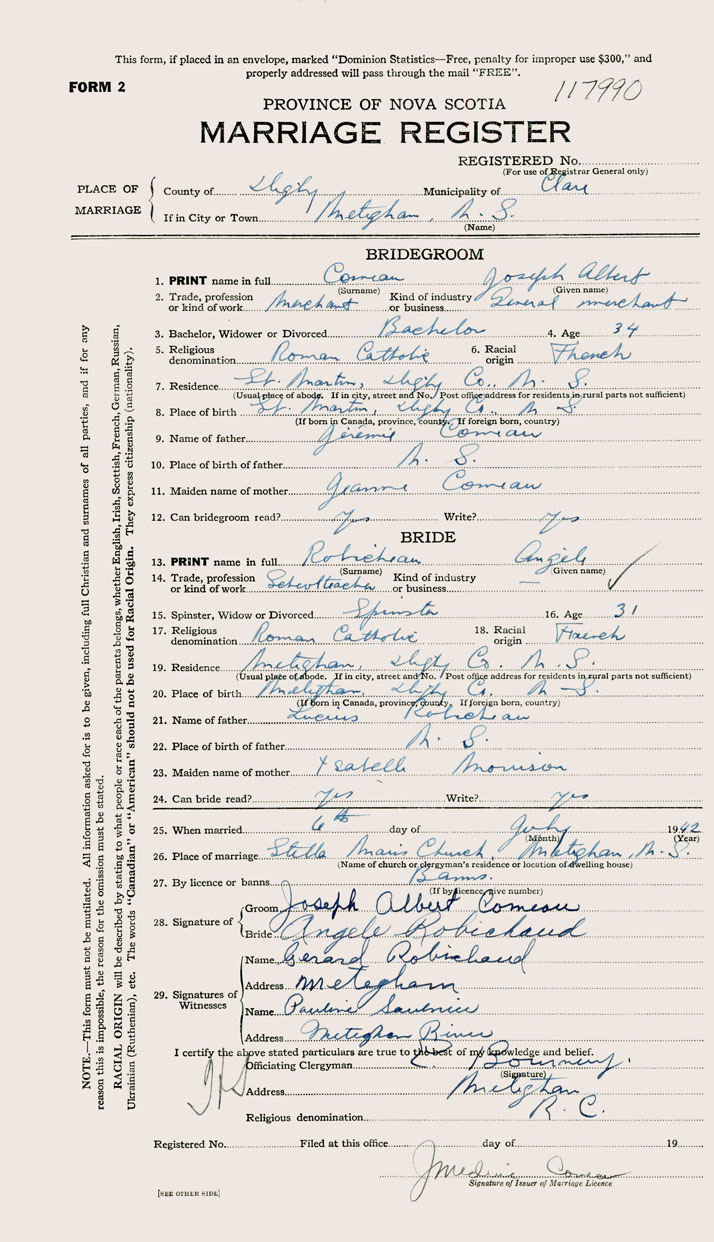 This form, if placed in an envelope, marked “Dominion Statistics—Free, penalty for improper use $300,” and
properly addressed will pass through the mail “FREE”.
FORM 2
117990
PROVINCE OF NOVA SCOTIA
MARRIAGE REGISTER
REGISTERED No.
(For use of Registrar General only)
PLACE OF MARRIAGE
County of Digby Municipality of Clare
If in City or Town Meteghan, N. S.
(Name)
BRIDEGROOM
1. PRINT name in full Comeau Joseph Albert
(Surname) (Given name)
2. Trade, profession or kind of work Merchant Kind of industry or business General merchant
3. Bachelor, Widower or Divorced Bachelor 4. Age 34
5. Religious denomination Roman Catholic 6. Racial origin French
7. Residence St. Martin, Digby Co., N. S.
(Usual place of abode. If in city, street and No. Post office address for residents in rural parts not sufficient)
8. Place of birth St. Martin, Digby Co., N S.
(If born in Canada, province, county. If foreign born, country)
9. Name of father Jérémie Comeau
10. Place of birth of father N. S.
11. Maiden name of mother Jeanne Comeau
12. Can bridegroom read? Yes Write? Yes
BRIDE
13. PRINT name in full Robicheau Angèle
(Surname) (Given name)
14. Trade, profession or kind of work Schoolteacher Kind of industry or business —
15. Spinster, Widow or Divorced Spinster 16. Age 31
17. Religious denomination Roman Catholic 18. Racial origin French
19. Residence Meteghan, Digby Co. N. S.
(Usual place of abode. If in city, street and No. Post office address for residents in rural parts not sufficient)
20. Place of birth Meteghan, Digby Co. N S.
(If born in Canada, province, county. If foreign born, country)
21. Name of father Lucius Robicheau
22. Place of birth of father N. S.
23. Maiden name of mother Ysabelle Morrison
24. Can bride read? Yes Write? Yes
25. When married 6th day of July 1942
(Month) (Year)
26. Place of marriage Stella Maris Church, Meteghan, N. S.
(Name of church or clergyman's residence or location of dwelling house)
27. By licence or banns Banns.
(If by licence give number)
28. Signature of
Groom Joseph Albert Comeau
Bride Angele Robichaud
29. Signatures of Witnesses
Name Gerard Robichaud
Address Meteghan
Name Pauline Saulnier
Address Meteghan River
I certify the above stated particulars are true to the best of my knowledge and belief.
Officiating Clergyman
(Signature)
Address Meteghan
Religious denomination R. C.
Registered No. Filed at this office day of 19
Comeau
Signature of Issuer of Marriage Licence
[SEE OTHER SIDE]
NOTE.—This form must not be mutilated. All information asked for is to be given, including full Christian and surnames of all parties, and if for any
reason this is impossible, the reason for the omission must be stated.
RACIAL ORIGIN will be described by stating to what people or race each of the parents belongs, whether English, Irish, Scottish, French, German, Russian,
Ukrainian (Ruthenian), etc. The words “Canadian” or “American” should not be used for Racial Origin. They express citizenship (nationality).